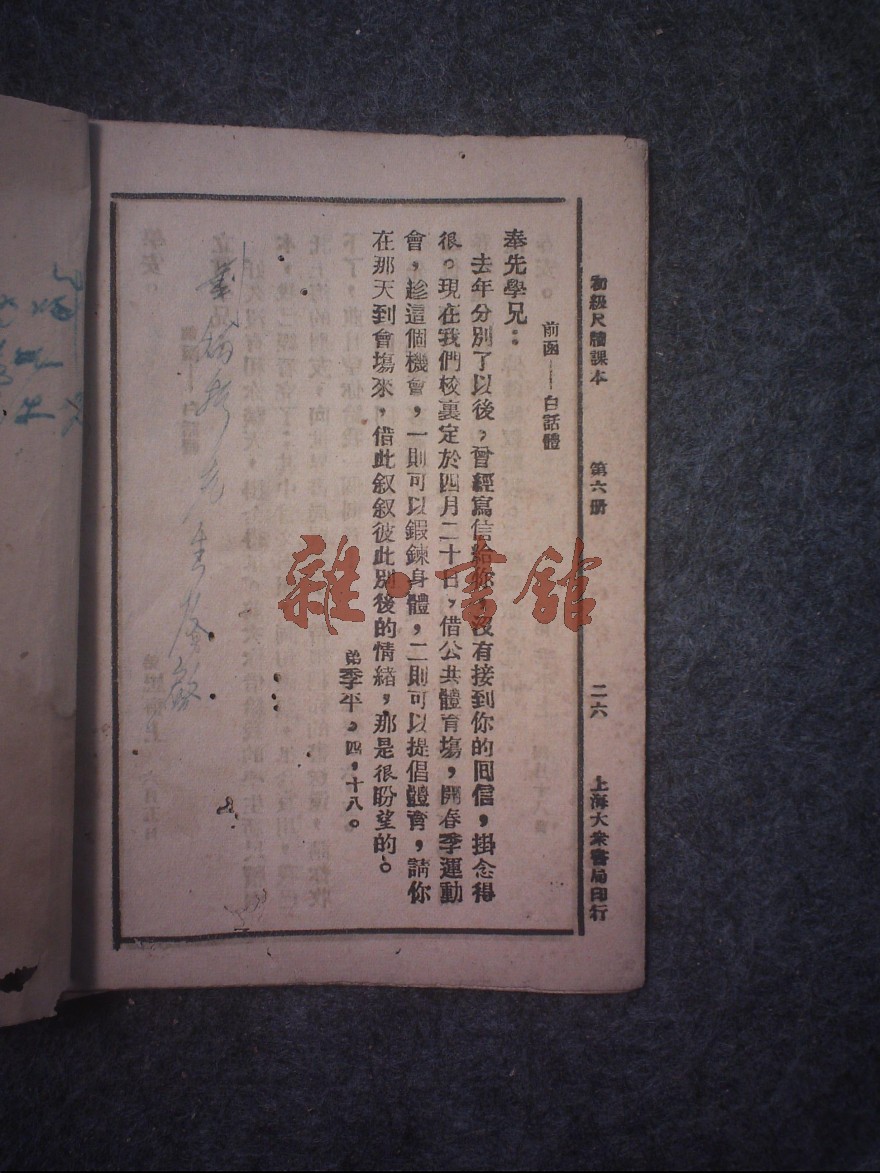 初級尺牘課本　第六册　二六　上海大衆書局印行
前函——白話體
奉先學兄：
去年分別了以後，曾經寫信給你，沒有接到你的囘信，掛念得
很。現在我們校裏定於四月二十日，借公共體育塲，開春季運動
會，趁這個機會，一則可以鍛鍊身體，二則可以提倡體育，請你
在那天到會塲來，借此叙叙彼此別後的情緒，那是很盼望的。
弟季平。四，十八。
雜·書舘